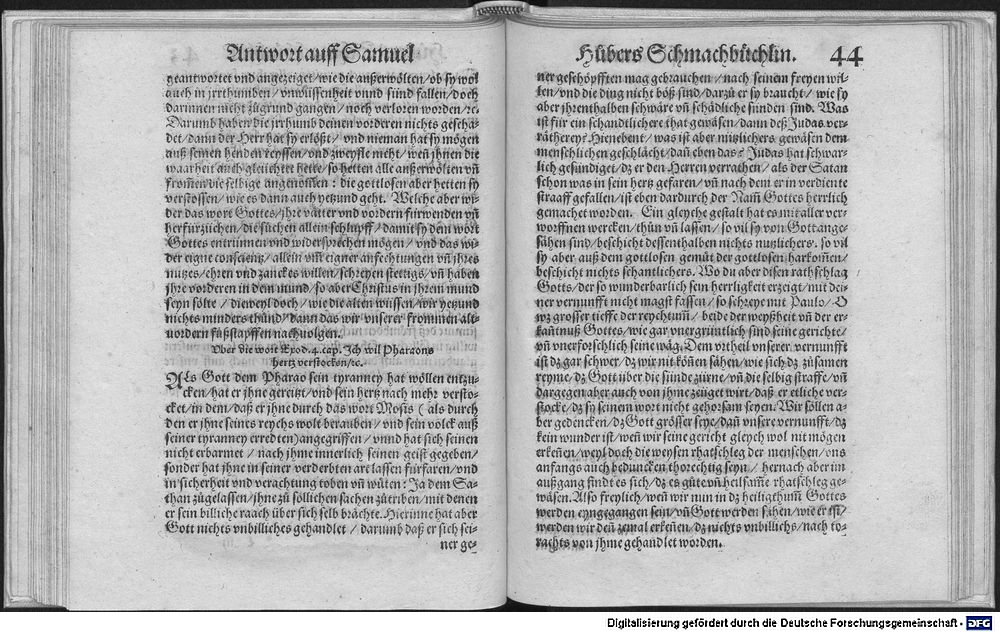 Antwort auff Samuel
geantwortet vnd angezeiget/wie die außerwölten/ob sy wol
auch in jrrthumben/vnwüssenheit vnnd sünd fallen/doch
darinnen nicht zůgrund gangen/noch verloren worden/ꝛc.
Darumb haben die jrrhumb deinen vorderen nichts gescha-
det/dann der Herr hat sy erlößt/vnd nieman hat sy mögen
auß seinen henden reyssen/vnd zweyfle nicht/weñ jhnen die
waarheit auch gleüchtet hette/so hetten alle außerwölten vñ
frommen die selbige angenommen: die gottlosen aber hetten sy
verstossen/wie es dann auch yetzund geht. Welche aber wi-
der das wort Gottes/jhre vätter vnd vordern fürwenden vñ
herfürziehen/die sůchen allein schlupff/damit sy dem wort
Gottes entrünnen vnd widersprechen mögen/vnd das wi-
der eigne conscientz/allein vm̃ eigner anfechtungen vñ jhres
nutzes/ehren vnd zanckes willen/schreyen stettigs/vñ haben
jhre vorderen in dem mund/so aber Christus in jhrem mund
seyn sölte/dieweyl doch/wie die alten wüssen/wir yetzund
nichts minders thůnd/dann das wir vnserer frommen alt-
uordern fůßstapffen nachuolgen.
Vber die wort Exod.4.cap. Ich wil Pharaons
hertz verstocken/ꝛc.
Als Gott dem Pharao sein tyranney hat wöllen entzu-
cken/hat er jhne gereitzt/vnd sein hertz nach mehr versto-
cket/in dem/daß er jhne durch das wort Mosis (als durch
den er jhne seines reychs wolt berauben/vnd sein volck auß
seiner tyranney erredten) angegriffen/vnnd hat sich seinen
nicht erbarmet/nach jhme innerlich seinen geist gegeben/
sonder hat jhne in seiner verderbten art lassen fürfaren/vnd
in sicherheit vnd verachtung toben vñ wüten: Ja dem Sa-
than zůgelassen/jhne zů söllichen sachen zůtriben/mit denen
er sein billiche raach über sich selb brächte. Hierinne hat aber
Gott nichts vnbilliches gehandlet/darumb daß er sich sei-
ner ge-
Hůbers Schmachbüchlin. 44
ner geschöpfften mag gebrauchen/nach seinem freyen wil-
len/vnd die ding nicht böß sind/darzů er sy braucht/wie sy
aber jhrenthalben schwäre vñ schädliche sünden sind. Was
ist für ein schandtlichere that gewäsen/dann deß Judas ver-
rätherey? Hienebent/was ist aber nutzlichers gewäsen dem
menschlichen geschlächt/dañ eben das? Judas hat schwar-
lich gesündiget/dz er den Herren verrathen/als der Satan
schon was in sein hertz gefaren/vñ nach dem er in verdiente
straaff gefallen/ist eben dardurch der Nam̃ Gottes herrlich
gemachet worden. Ein gleyche gestalt hat es mit aller ver-
worffnen wercken/thůn vñ lassen/so vil sy von Gott ange-
sähen sind/beschicht dessenthalben nichts nutzlichers. so vil
sy aber auß dem gottlosen gemüt der gottlosen harkom̃en/
beschicht nichts schantlichers. Wo du aber disen rathschlag
Gotts/der so wunderbarlich sein herrligkeit erzeigt/mit dei-
ner vernunfft nicht magst fassen/so schreye mit Paulo/O
wz grosser tieffe der reychtum̃/beide der weyßheit vñ der er-
kañtnuß Gottes/wie gar vnergrüntlich sind seine gerichte/
vñ vnerforschlich seine wäg. Dem vrtheil vnserer vernunfft
ist dz gar schwer/dz wir nit köñen sähen/wie sich dz zůsamen
reyme/dz Gott über die sünde zürne/vñ die selbig straffe/vñ
dargegen aber auch von jhme zeüget wirt/daß er etliche ver-
stocke/dz sy seinem wort nicht gehorsam seyen. Wir söllen a-
ber gedencken/dz Gott grösser seye/dañ vnsere vernunfft/dz
kein wunder ist/weñ wir seine gericht gleych wol nit mögen
erkeñen/weyl doch die weysen rhatschleg der menschen/vns
anfangs auch beduncken thorechtig seyn/hernach aber im
außgang findt es sich/dz es gůte vñ heilsame rhatschleg ge-
wäsen. Also freylich/weñ wir nun in dz heiligthum̃ Gottes
werden eyngegangen sein/vñ Gott werden sähen/wie er ist/
werden wir deñ zemal erkeñen/dz nichts vnbillichs/nach to-
rachts von jhme gehandlet worden.
Digitalisierung gefördert durch die Deutsche Forschungsgemeinschaft - DFG